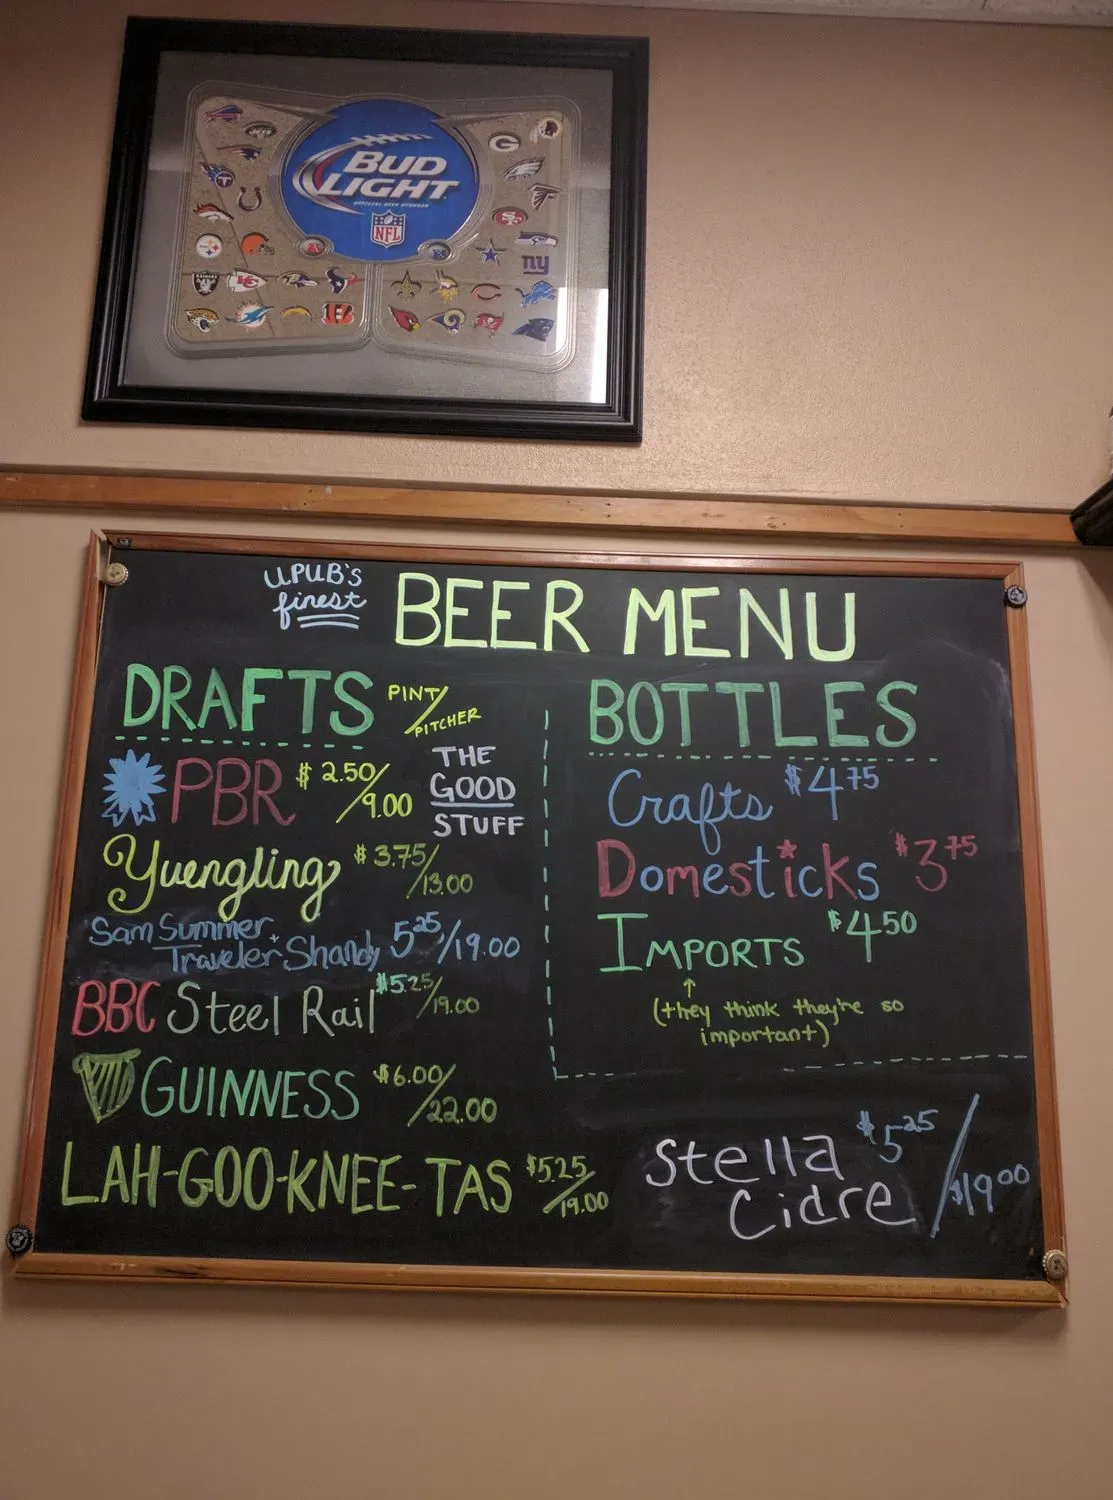 BUD
LIGHT
OFFICIAL BEER SPONSOR
NFL
JETS
ny
UPUB'S
finest
BEER MENU
DRAFTS PINT/
PITCHER
PBR $2.50/
9.00
THE
GOOD
STUFF
Yuengling $3.75/
13.00
Sam Summer +
Traveler Shandy 5.25/19.00
BBC Steel Rail $5.25/
19.00
GUINNESS $6.00/
22.00
LAH-GOO-KNEE-TAS $5.25/
19.00
BOTTLES
Crafts $4.75
Domesticks $3.75
IMPORTS $4.50
(they think they're so
important)
Stella $5.25/
Cidre $19.00